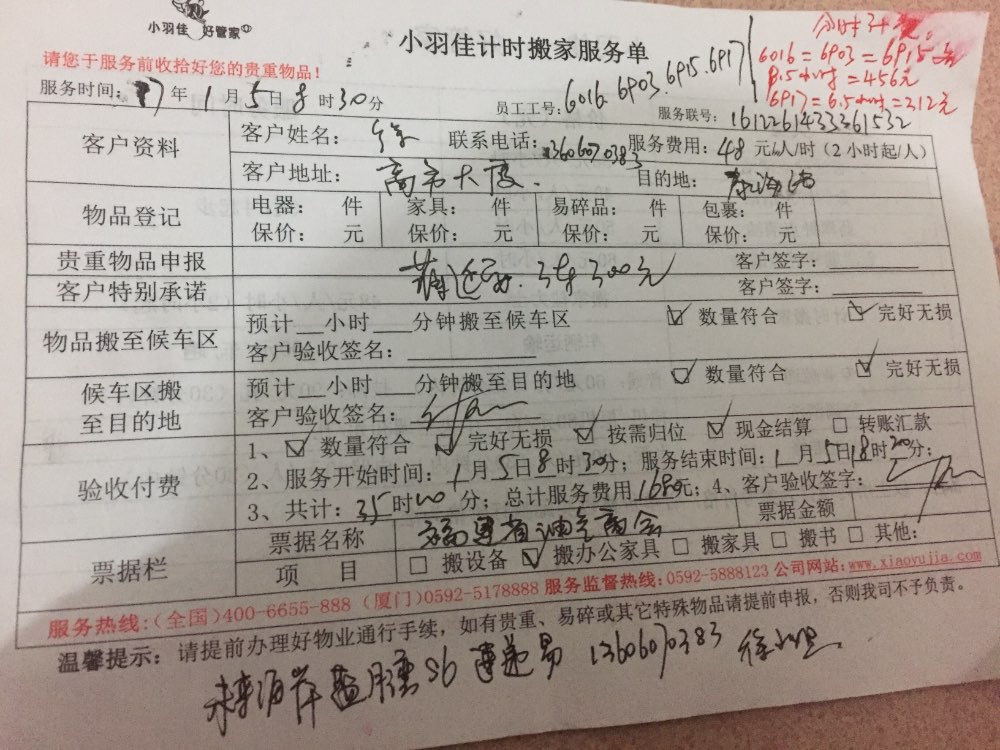 小羽佳 好管家
小羽佳计时搬家服务单
请您于服务前收拾好您的贵重物品！
6016=6903=6915
8.5小时=456元
6917=6.5小时=312元
服务时间：17年1月5日8时30分
员工工号：6016.6903.6915.6917
服务联号：1612261433361532
客户资料 客户姓名：徐 联系电话：13606070383 服务费用：48元/人/时（2小时起/人）
客户地址： 目的地：
物品登记 电器： 件 家具： 件 易碎品： 件 包裹： 件
保价： 元 保价： 元 保价： 元 保价： 元
贵重物品申报 客户签字：
300元
客户特别承诺 客户签字：
物品搬至候车区 预计 小时 分钟搬至候车区 数量符合 完好无损
客户验收签名：
候车区搬至目的地 预计 小时 分钟搬至目的地 数量符合 完好无损
客户验收签名：
验收付费 1、数量符合 完好无损 按需归位 现金结算 转账汇款
2、服务开始时间：1月5日8时30分；服务结束时间：1月5日18时20分；
3、共计：35时00分；总计服务费用1680元；4、客户验收签字：
票据栏 票据名称 福建省油气商会 票据金额
项 目 搬设备 搬办公家具 搬家具 搬书 其他：
服务热线：(全国)400-6655-888 (厦门)0592-5178888 服务监督热线：0592-5888123 公司网站：www.xiaoyujia.com
温馨提示：请提前办理好物业通行手续，如有贵重、易碎或其它特殊物品请提前申报，否则我司不予负责。
未来海岸蓝月湾26 13606070383 徐